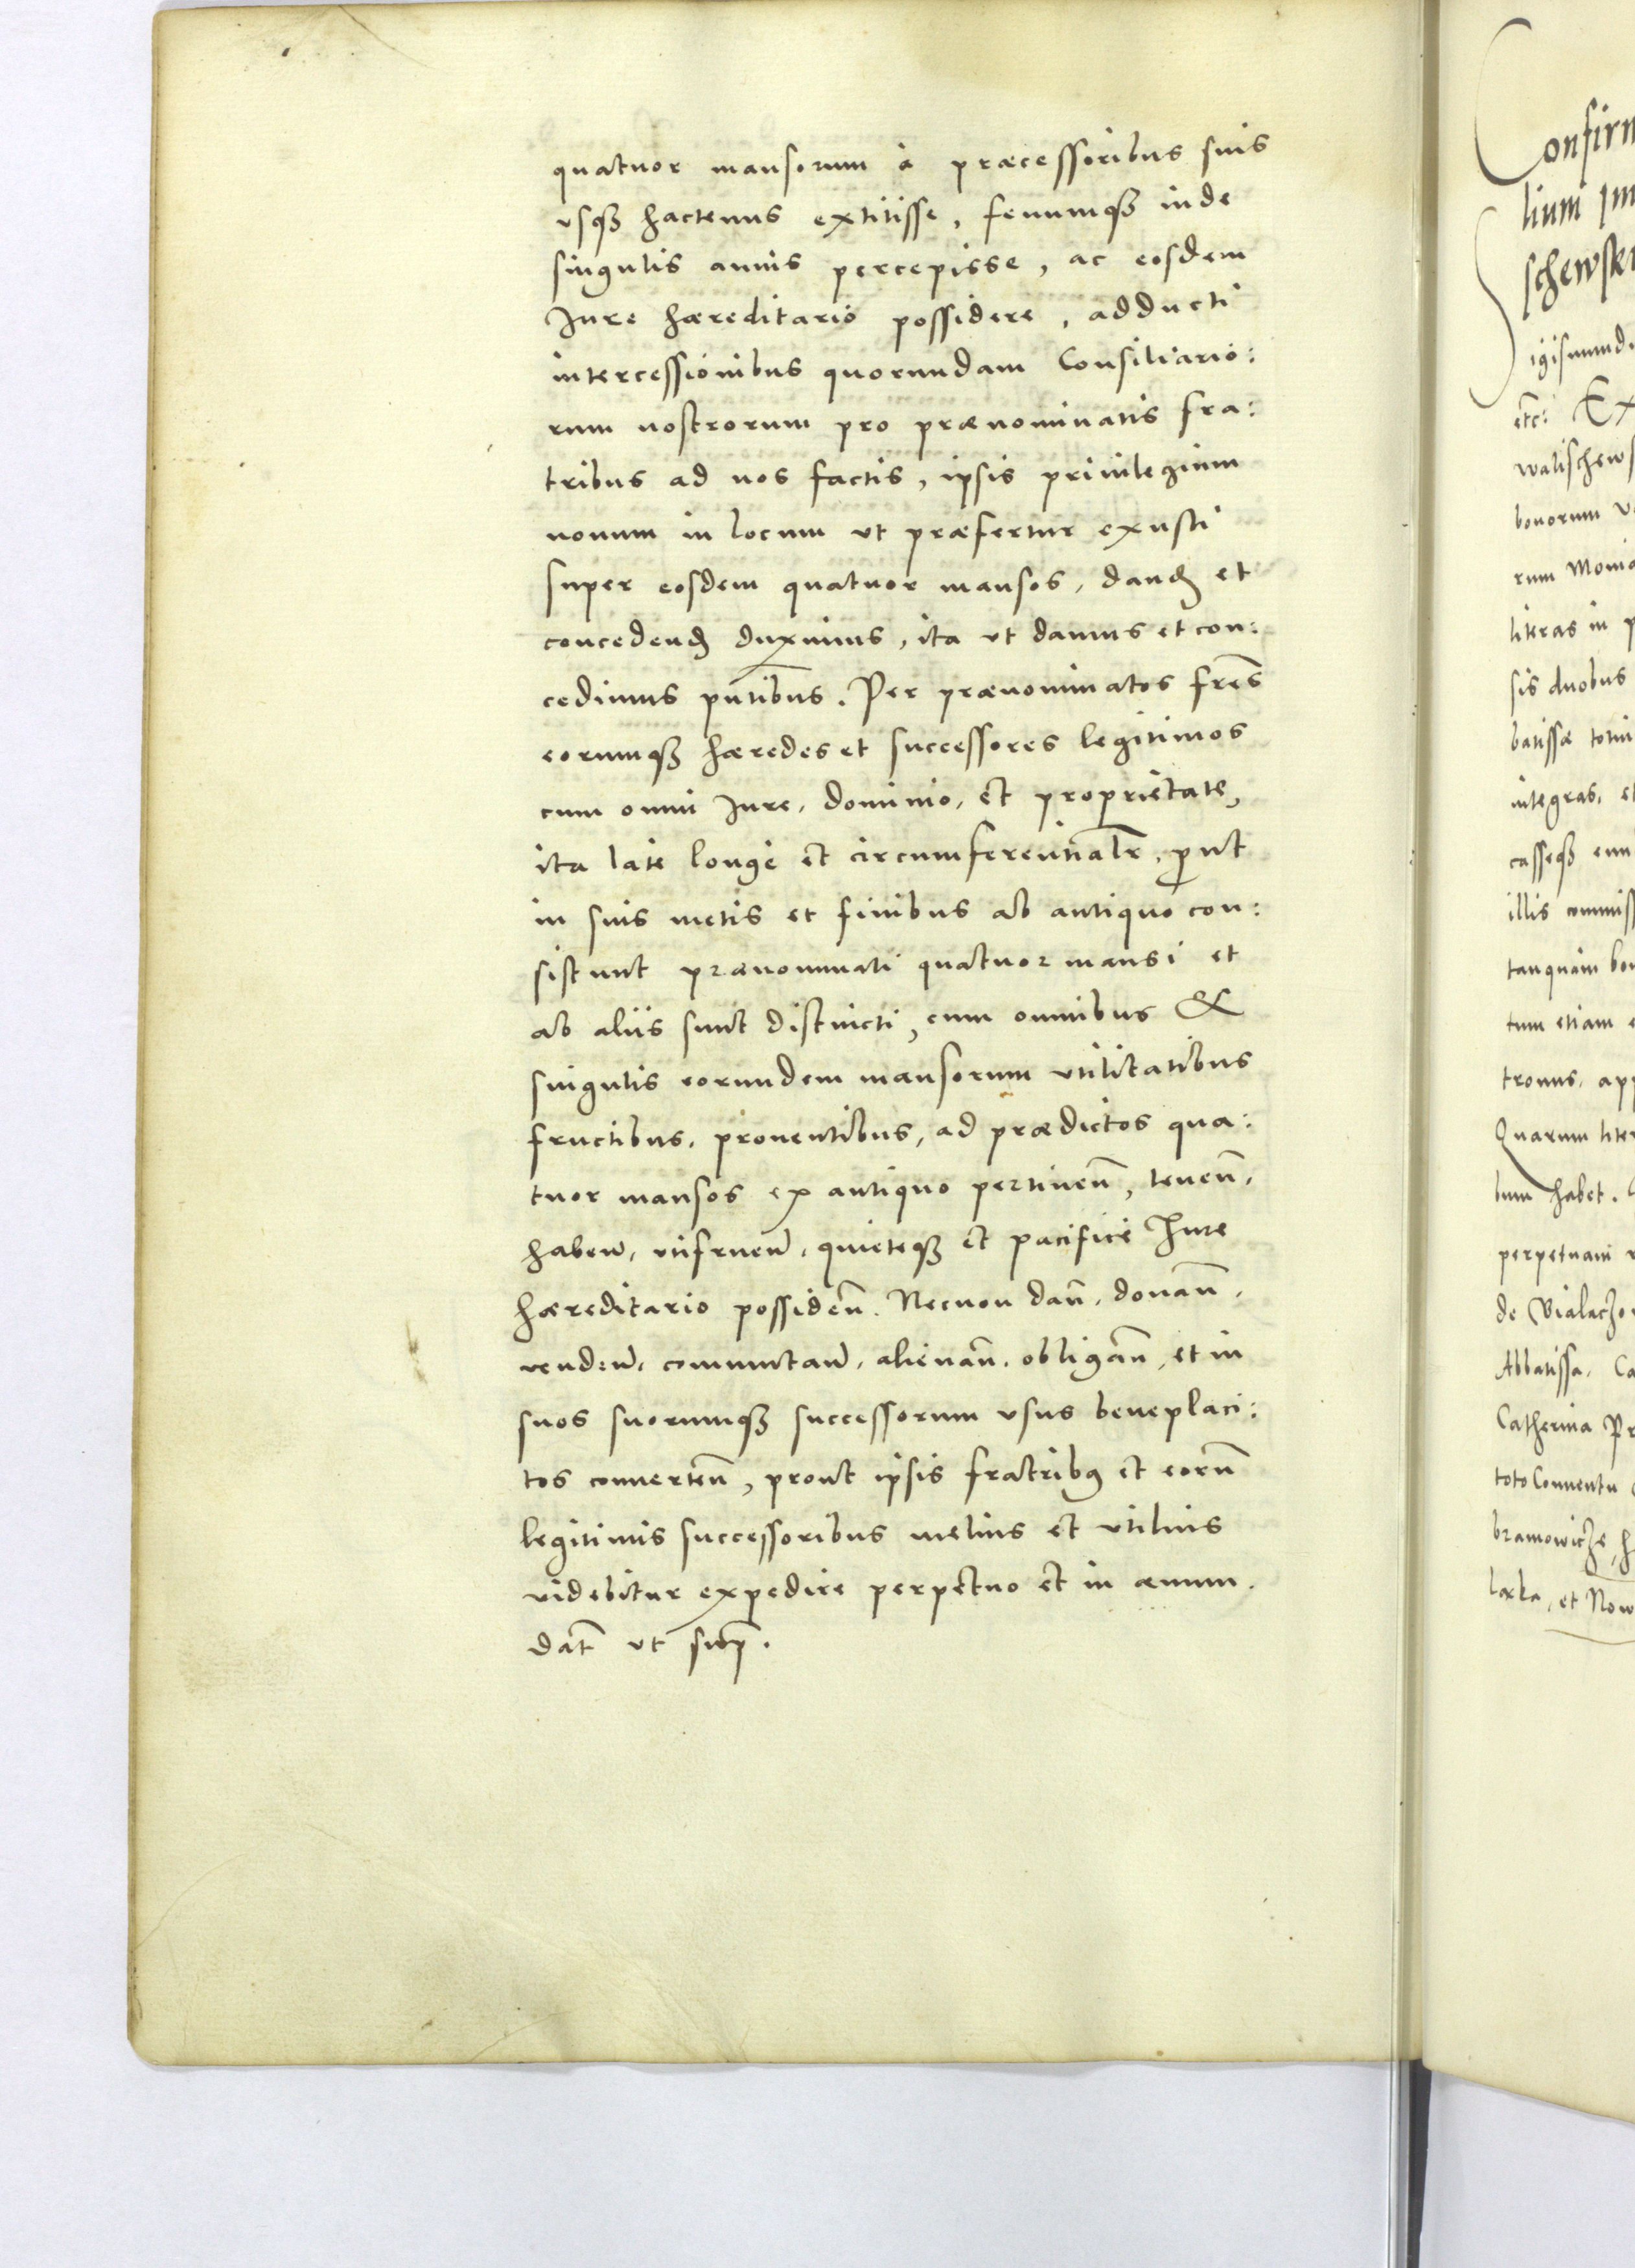 quatuor mansorum à præcessoribus suis
usqꝫ hactenus extitisse, fenumqꝫ inde
singulis annis percepisse, ac eosdem
Jure hæreditario possidere, adducti
intercessionibus quorundam Consiliario:
rum nostrorum pro prænominatis fra:
tribus ad nos factis, ipsis priuilegium
nouum in locum ut præfertur exusti
super eosdem quatuor mansos, dand et
concedend duximus, ita ut damus et con:
cedimus pn̄tibus. Per prænominatos frēs
eorumqꝫ hæredes et successores legitimos
cum omni Jure, dominio, et proprietate,
ita late longe et circumferentialr̄, ꝓut
in suis metis et finibus ab antiquo con:
sistunt prænominati quatuor mansi et
ab aliis sunt distincti, cum omnibus &
singulis eorundem mansorum utilitatibus
fructibus, prouentibus, ad prædictos qua:
tuor mansos ex antiquo pertinen̄, tenen̄,
haben̄, utifruen̄, quieteqꝫ et pacifice Jure
hæreditario possiden̄. Necnon dan̄, donan̄,
venden̄, commutan̄, alienan̄, obligan̄, et in
suos suorumqꝫ successorum usus beneplaci:
tos conuerten̄, prout ipsis fratribꝰ et eorū
legitimis successoribus melius et utilius
videbitur expedire perpetuo et in æuum.
dat̄ ut sup̄.
onfirm
lium im
schewsk
igismund.
etc: Ex
walischews
bonorum
rum Monia
literas in p
sis duobus
batissæ totiu
integras, et
casseqꝫ
illis commiss
tanquam bo
tum etiam
tronus, app
Quarum liter
bum habet.
perpetuam
de Bialaczo
Abbatissa, Ca
Catherina Pr
toto Conuentu
bramowicze, h
et Now